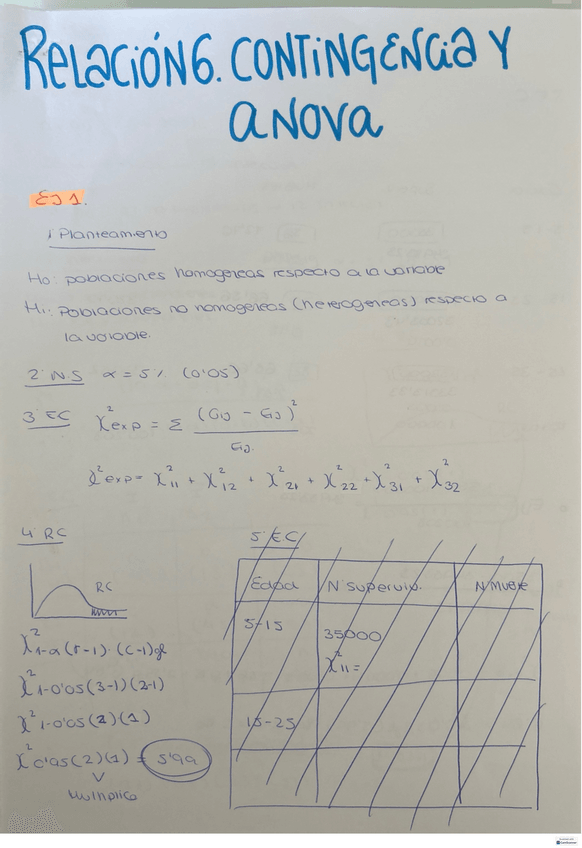 RELACIÓN 6. CONTINGENCIA Y
ANOVA
EJ 1.
1 Planteamiento
H0: poblaciones homogeneas respecto a la variable
H1: Poblaciones no homogeneas (heterogeneas) respecto a
la variable.
2. N.S α = 5% (0'05)
3. EC χ²exp = Σ (Gij - Eij)² / Eij
χ²exp = χ²11 + χ²12 + χ²21 + χ²22 + χ²31 + χ²32
4. RC
RC
χ²1-α (r-1)·(c-1)gl
χ²1-0'05(3-1)(2-1)
χ²1-0'05(2)(1)
χ²0'95(2)(1) = 5'99
multiplico
5. E.C
Edad N° Superviv. N Muere
5-15
35000
χ²11 =
15-25